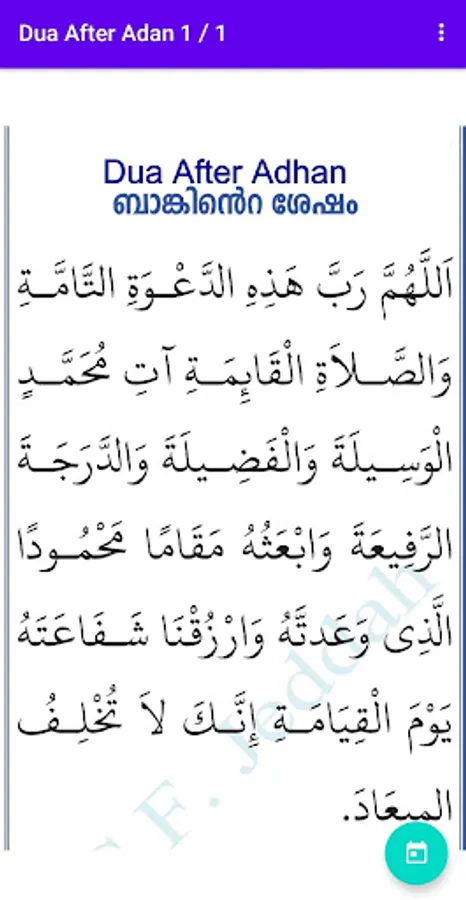 Dua After Adan 1 / 1
Dua After Adhan
ബാങ്കിൻെറ ശേഷം
اَللَّهُمَّ رَبَّ هَذِهِ الدَّعْـوَةِ التَّامَّـةِ
وَالصَّـلاَةِ الْقَائِمَـةِ آتِ مُحَمَّـدٍ
الْوَسِـيلَةَ وَالْفَضِـيلَةَ وَالدَّرَجَـةَ
الرَّفِيعَةَ وَابْعَثْهُ مَقَامًا مَحْمُـودًا
الَّذِى وَعَدتَّهُ وَارْزُقْنَا شَـفَاعَتَهُ
يَوْمَ الْقِيَامَـةِ إِنَّـكَ لاَ تُخْلِـفُ
الميعَادَ.
F. Jeddah